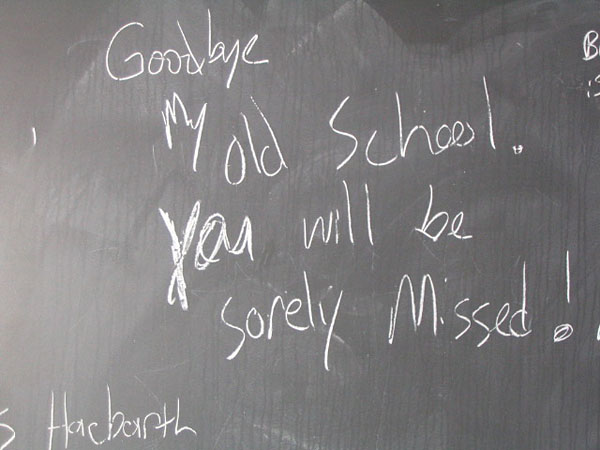 Goodbye
My old School.
You will be
sorely Missed!
s Hacbarth